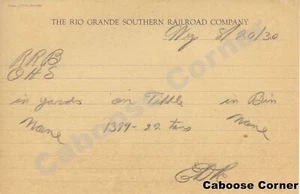 THE RIO GRANDE SOUTHERN RAILROAD COMPANY
8/20/30
RRB
in yards on Tittle in Bin
None 1379-22 tns None
Caboose Corner
Caboose Corner